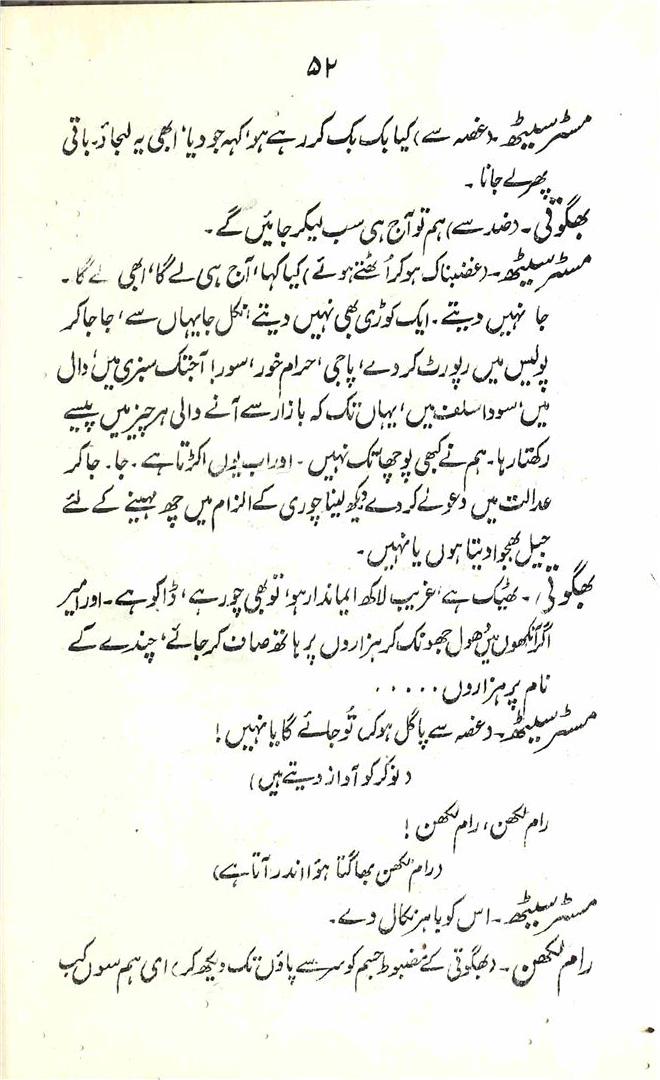 ۵۲
مسٹر سیٹھ۔ (غصہ سے) کیا بک بک کر رہے ہو، کہہ جو دیا، ابھی یہ لیجاؤ۔ باقی
پھر لے جانا۔
بھگوتی۔ (ضد سے) ہم تو آج ہی سب لیکر جائیں گے۔
مسٹر سیٹھ۔ (غضبناک ہو کر اُٹھتے ہوئے) کیا کہا، آج ہی لے گا، ابھی لے گا۔
جا نہیں دیتے۔ ایک کوڑی بھی نہیں دیتے، نکل جا یہاں سے، جا جا کر
پولیس میں رپورٹ کر دے، پاجی، حرام خور، سور! آجتک سبزی میں، دال
میں، سودا سلف میں، یہاں تک کہ بازار سے آنے والی ہر چیز میں پیسے
رکھتا رہا۔ ہم نے کبھی پوچھا تک نہیں۔ اور اب یوں اکڑتا ہے۔ جا۔ جا کر
عدالت میں دعوےٰ کر دے دیکھ لینا چوری کے الزام میں چھ مہینے کے لئے
جیل بھجوا دیتا ہوں یا نہیں۔
بھگوتی۔ ٹھیک ہے، غریب لاکھ ایماندار ہو، تو بھی چور ہے، ڈاکو ہے۔ اور امیر
اگر آنکھوں میں دُھول جھونک کر ہزاروں پر ہاتھ صاف کر جائے، چندے کے
نام پر ہزاروں . . . . .
مسٹر سیٹھ۔ (غصہ سے پاگل ہو کر) تُو جائے گا یا نہیں!
(نوکر کو آواز دیتے ہیں)
رام لکھن، رام لکھن!
(رام لکھن بھاگتا ہوا اندر آتا ہے)
مسٹر سیٹھ۔ اس کو باہر نکال دے۔
رام لکھن۔ (بھگوتی کے مضبوط جسم کو سر سے پاؤں تک دیکھ کر) ای ہم سوں کب